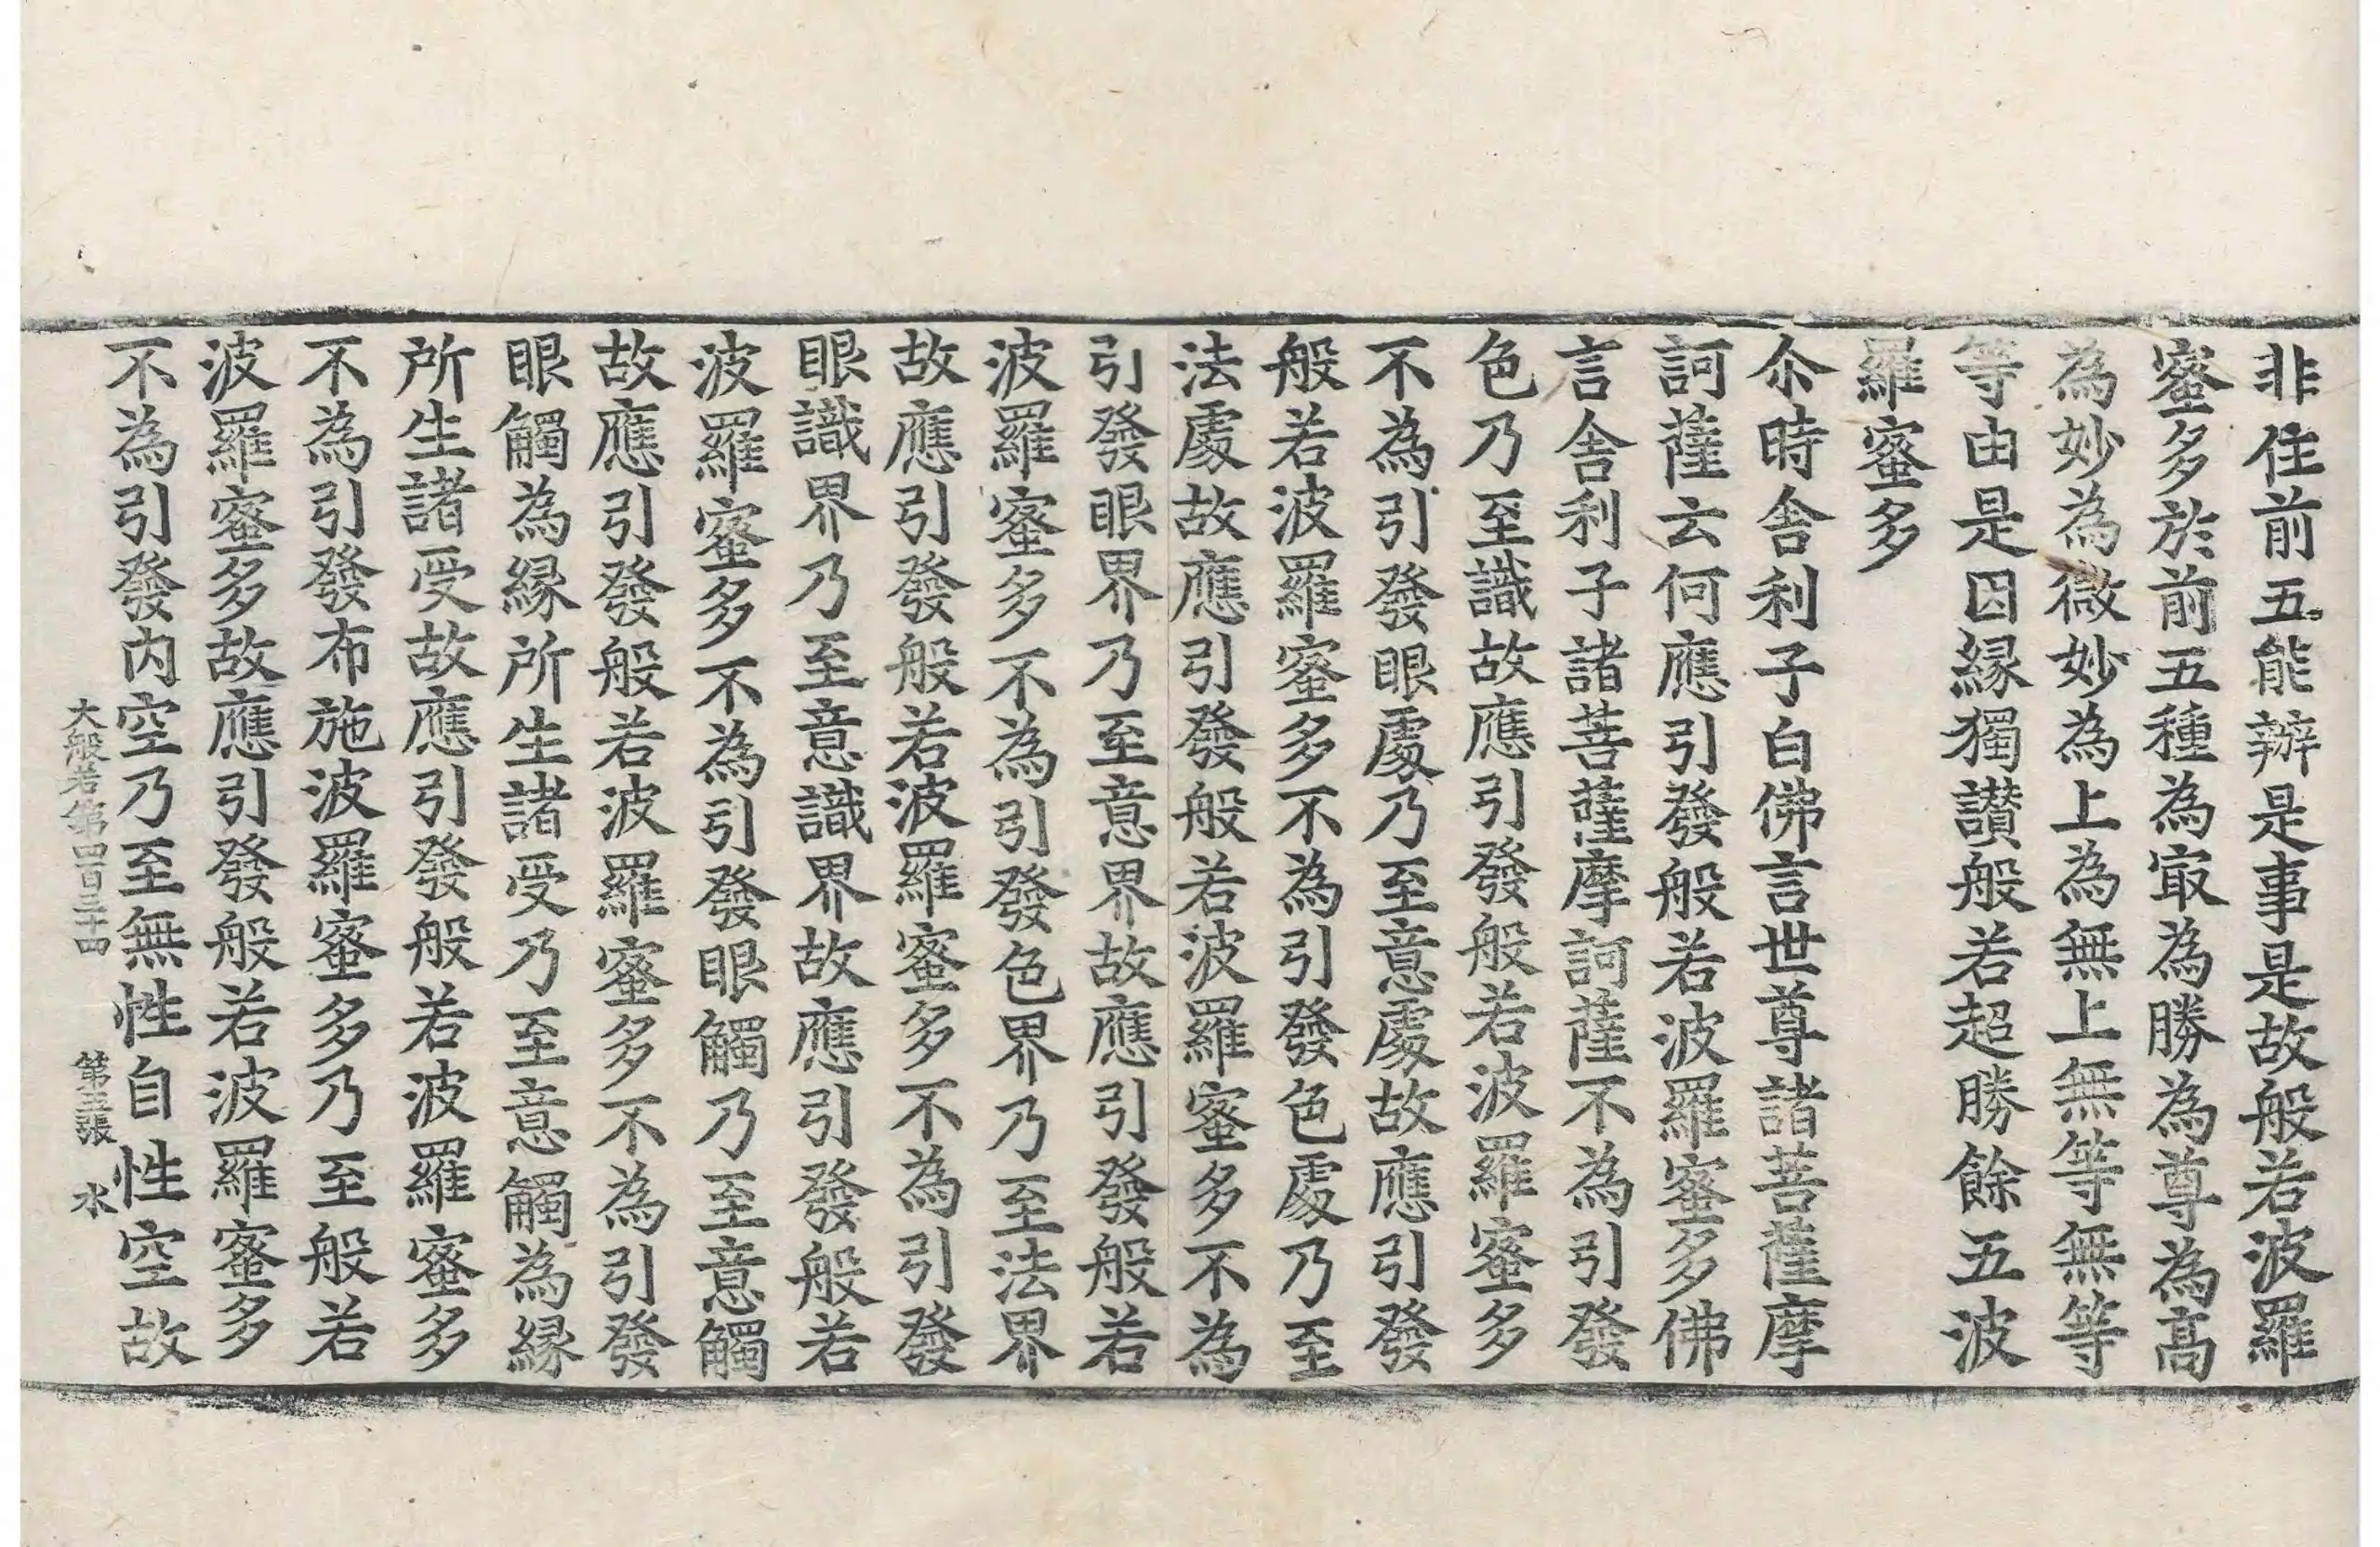 非住前五能辦是事是故般若波羅
蜜多於前五種為㝡為勝為尊為高
為妙為微妙為上為無上無等無等
等由是因緣獨讃般若超勝餘五波
羅蜜多
尒時舍利子白佛言世尊諸菩薩摩
訶薩云何應引發般若波羅蜜多佛
言舍利子諸菩薩摩訶薩不為引發
色乃至識故應引發般若波羅蜜多
不為引發眼處乃至意處故應引發
般若波羅蜜多不為引發色處乃至
法處故應引發般若波羅蜜多不為
引發眼界乃至意界故應引發般若
波羅蜜多不為引發色界乃至法界
故應引發般若波羅蜜多不為引發
眼識界乃至意識界故應引發般若
波羅蜜多不為引發眼觸乃至意觸
故應引發般若波羅蜜多不為引發
眼觸為緣所生諸受乃至意觸為緣
所生諸受故應引發般若波羅蜜多
不為引發布施波羅蜜多乃至般若
波羅蜜多故應引發般若波羅蜜多
不為引發內空乃至無性自性空故
大般若第四百三十四 第三張 水